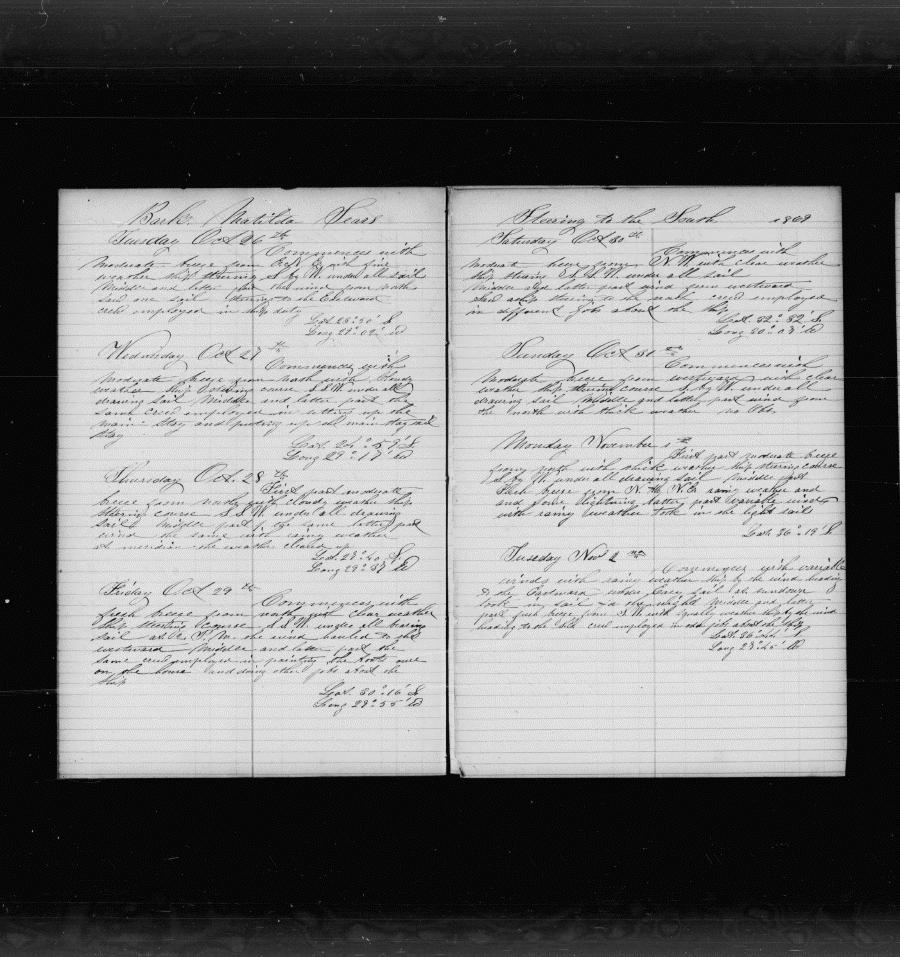 Bark Matilda Sears
Tuesday Oct 26th
Commences with
moderate breeze from E with fine
weather ship steering S by W. under all sail
Middle and latter part the wind from north
Sand one sail steering to the Eastward
crew employed in ship duty
Lat. 25° 30' S
Long 29° 02' W
Wednesday Oct 27th
Commences with
moderate breeze from North with cloudy
weather Ship Steering course S.S.W. under all
drawing sail Middle and latter part the
same crew employed in setting up the
main Stay and putting up old main stay sail
Stay
Lat. 26° 59' S
Long 29° 19' W
Thursday Oct. 28th
First part moderate
breeze from north cloudy weather Ship
Steering course S.S.W. under all drawing
sail Middle part the same latter part
wind the same with rainy weather
at meridian the weather cleared up
Lat. 29° 20' S
Long 29° 37' W
Friday Oct 29th
Commences with
fresh breeze from north and clear weather
Ship Steering course S.S.W. under all drawing
sail at P.M. the wind hauled to the
westward Middle and latter part the
same crew employed in painting the boats one
on the house and doing other jobs about the
Ship
Lat. 30° 16' S
Long 29° 55' W
Steering to the South 1869
Saturday Oct 30th
Commences with
moderate breeze from N.W. with clear weather
ship steering S.S.W. under all sail
Middle and latter part wind from westward
and ship steering to the south crew employed
in different jobs about the Ship
Lat. 32° 32' S
Long 30° 03' W
Sunday Oct 31st
Commences with
Moderate breeze from westward with clear
weather Ship Steering course S. by W. under all
drawing sail Middle and latter part wind from
the north with thick weather no Obs.
Monday November 1st
First part moderate breeze
from north with thick weather ship steering course
S. by W. under all drawing sail Middle part
Fresh breeze from N. to N.E. rainy weather and
and some lightning latter part variable winds
with rainy weather took in the light sails
Lat. 36° 19' S
Tuesday Nov 2nd
Commences with variable
winds with rainy weather Ship by the wind heading
to the Eastward under easy sail at sundown
took in sail for the night Middle and latter
part fresh breeze from S.W. with squally weather Ship by the wind
heading to the crew employed in odd jobs about the Ship
Lat. 36° 44' S
Long 28° 45' W